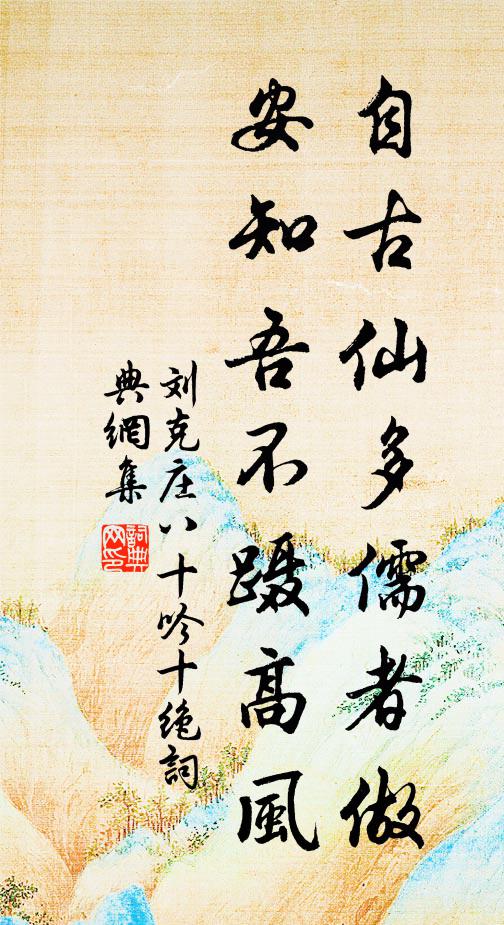 自古仙多儒者做
安知吾不蹑高風
刘克庄八十吟十绝詞
典網集
詞典
网印